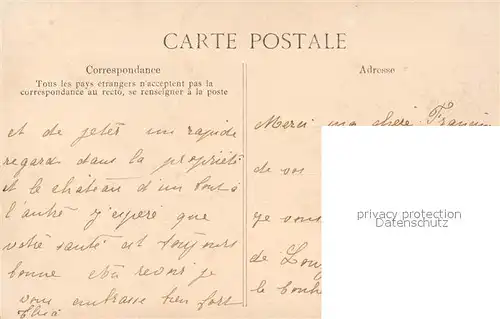 CARTE POSTALE
Correspondance
Tous les pays étrangers n'acceptent pas la
correspondance au recto, se renseigner à la poste
Adresse
et de jeter un rapide
regard dans la propriété
et le château d'un bout à
l'autre j'espère que
votre santé est toujours
bonne au revoir je
vous embrasse bien fort
Merci ma chère
de vos
je vous
de
le bonh
privacy protection
Datenschutz